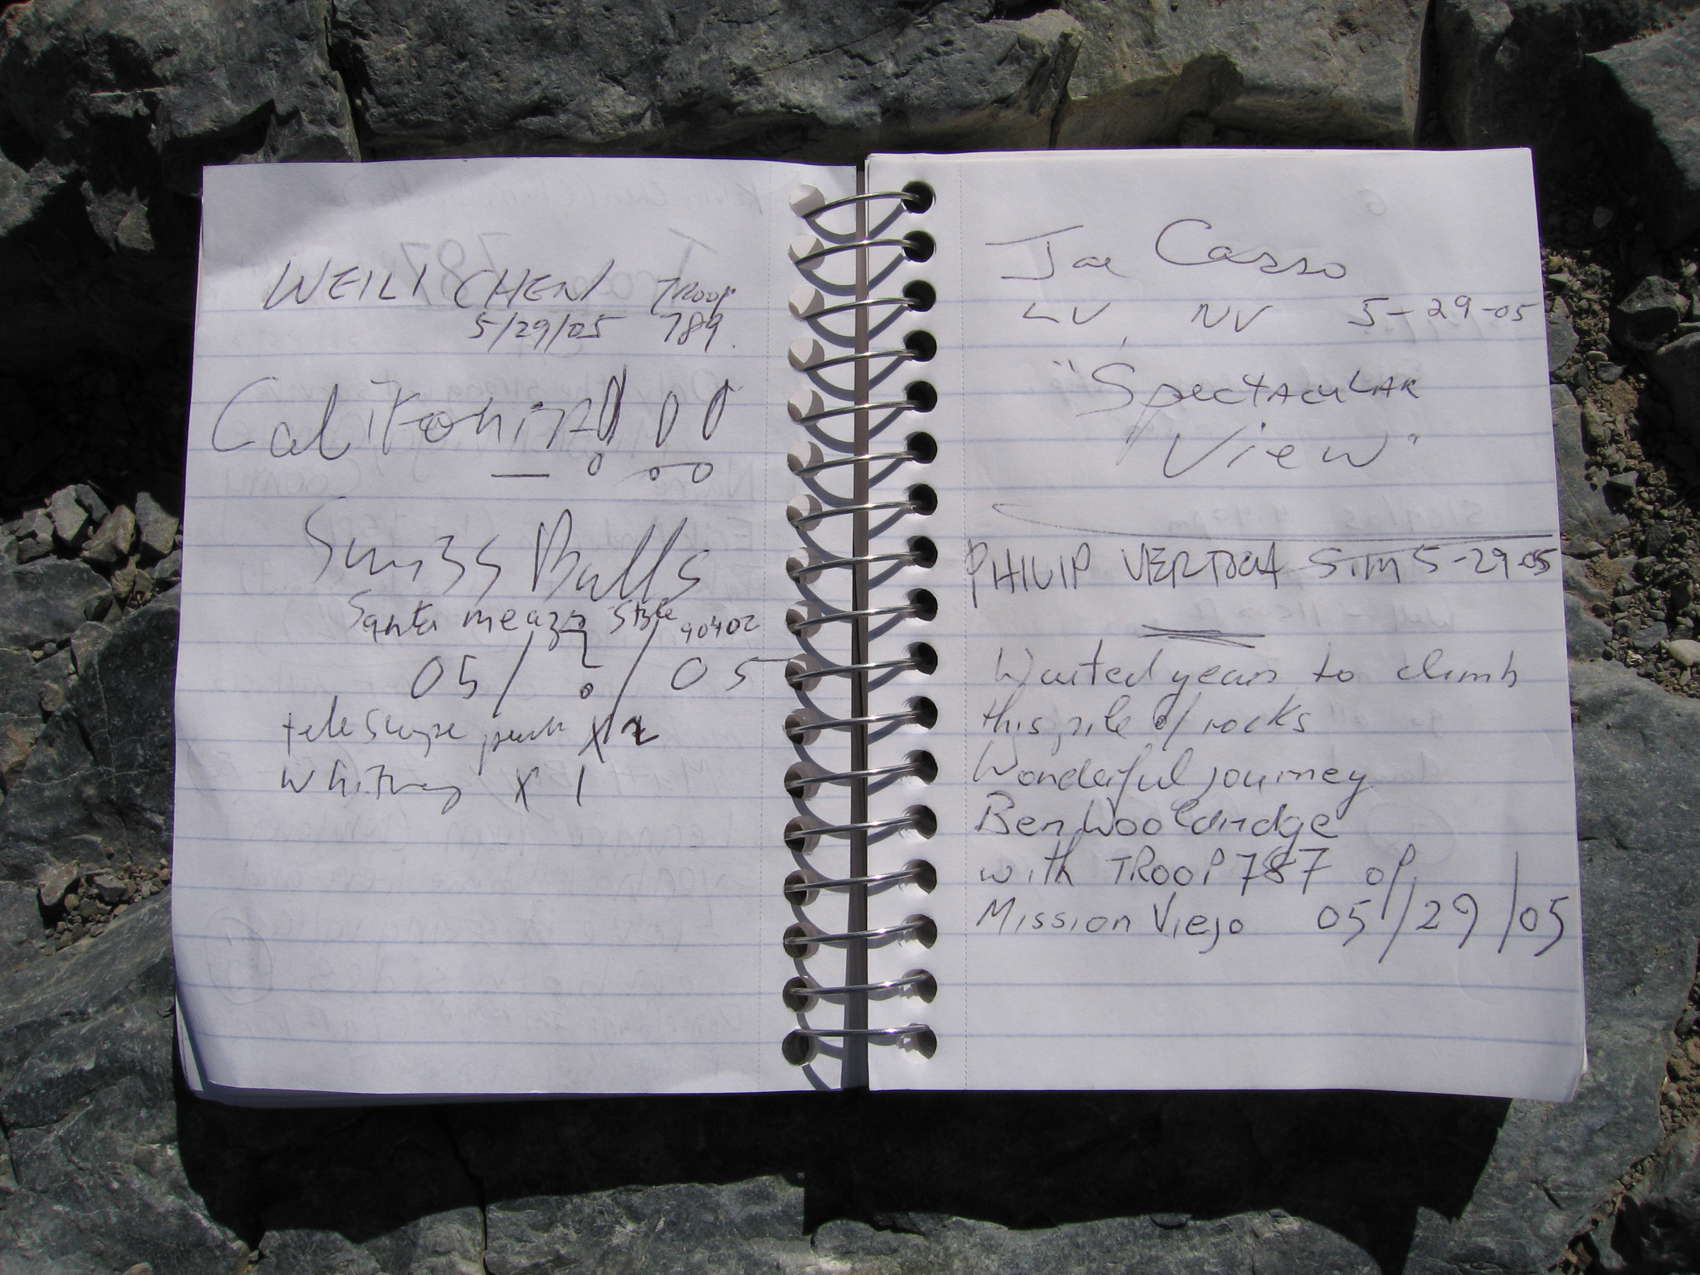 WEILI CHEN Troop
5/29/05 789.
Calitornia!!!
Balls
Santa
90402
05/?/05
telescope peak X2
Whitney X 1
Joe Casso
LV, NV 5-29-05
"Spectacular
View"
PHILIP 5-29-05
Waited years to climb
this pile of rocks
Wonderful journey
Ben Wooldridge
with TROOP 787 of
Mission Viejo 05/29/05